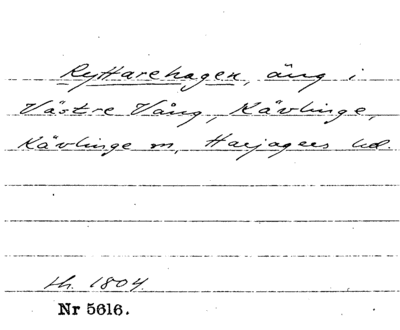 Ryttarehagen, äng i
Västre Vång, Kävlinge,
Kävlinge sn, Harjagers hd.
th. 1804
Nr 5616.